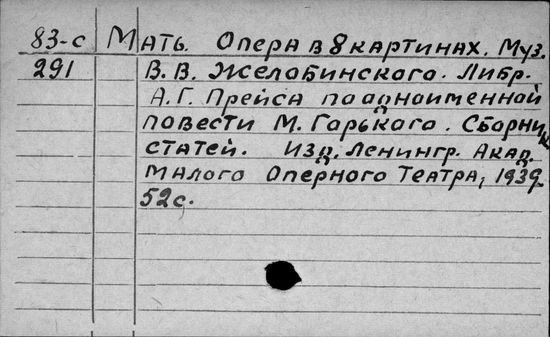 83-с Мать. Опера в 8 картинах. Муз.
291 В. В. Желобинского. Либр.
А. Г. Прейса по одноименной
повести М. Горького. Сборник
статей. Изд. Ленингр. Акад.
Малого Оперного Театра, 1939.
52 с.